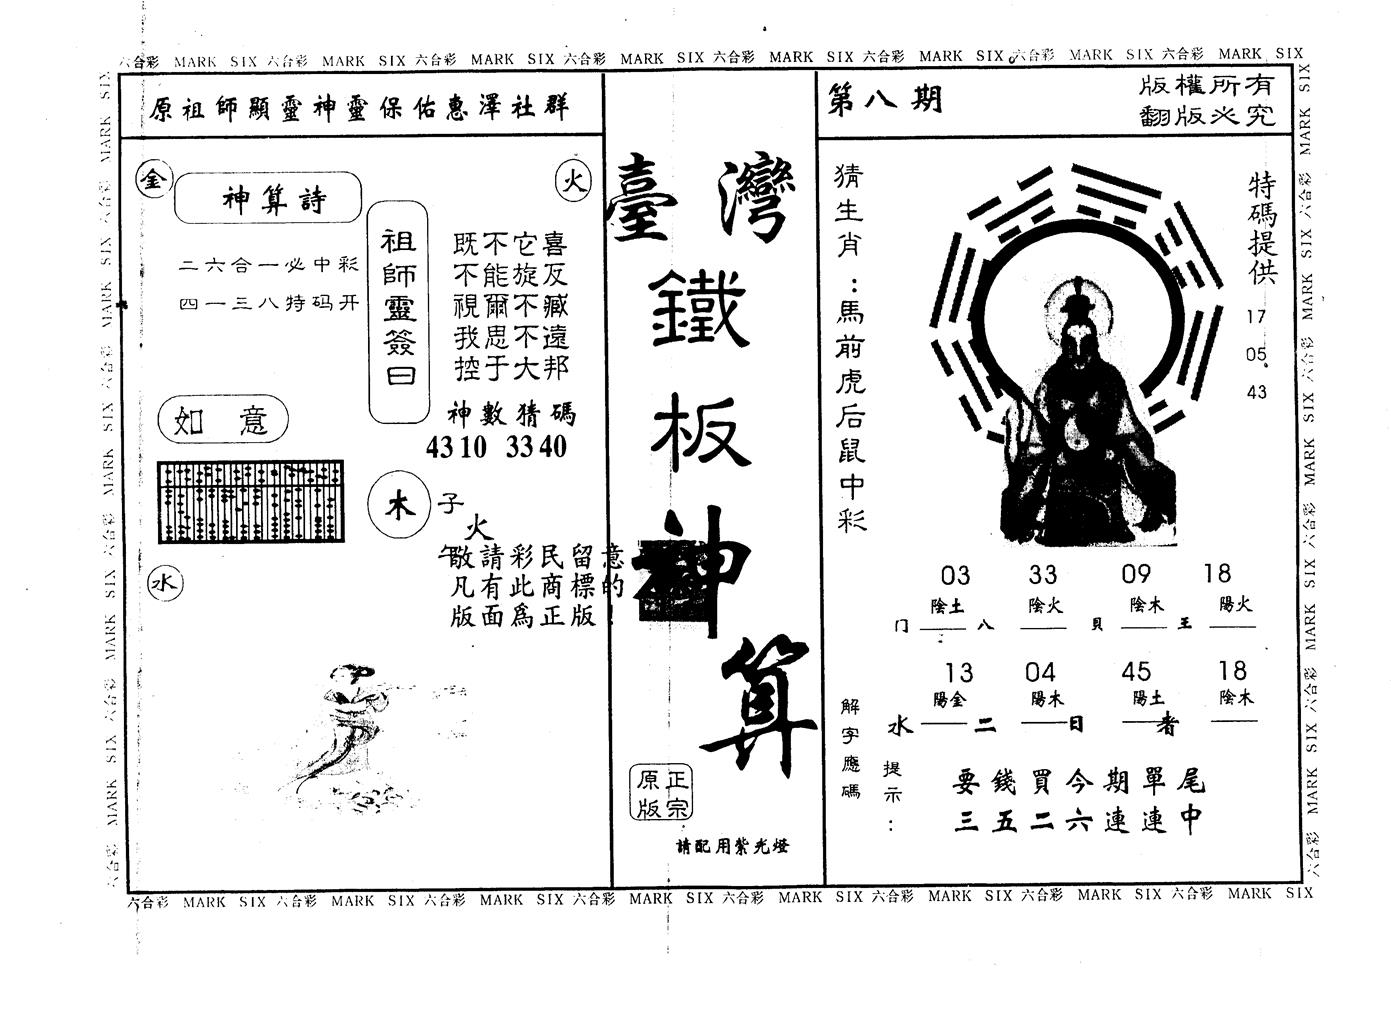 六合彩 MARK SIX 六合彩 MARK SIX 六合彩 MARK SIX 六合彩 MARK SIX 六合彩 MARK SIX 六合彩 MARK SIX 六合彩 MARK SIX 六合彩 MARK SIX
原祖師顯靈神靈保佑惠澤社群
金
火
神算詩
二六合一必中彩
四一三八特码开
祖師靈簽曰
既不它喜
不能旋反
視爾不臧
我思不遠
控于大邦
神數猜碼
43 10 33 40
如意
木
子
火
午
水
敬請彩民留意
凡有此商標的
版面爲正版!
臺灣
鐵
板
神
算
正宗
原版
請配用紫光燈
第八期
版權所有
翻版必究
猜生肖:馬前虎后鼠中彩
特碼提供
17
05.
43
03 33 09 18
陰土 陰火 陰木 陽火
门 八 貝 王
13 04 45 18
陽金 陽木 陽土 陰木
水 二 日 者
解字應碼
提示:
要錢買今期單尾
三五二六連連中
六合彩 MARK SIX 六合彩 MARK SIX 六合彩 MARK SIX 六合彩 MARK SIX 六合彩 MARK SIX 六合彩 MARK SIX 六合彩 MARK SIX 六合彩 MARK SIX